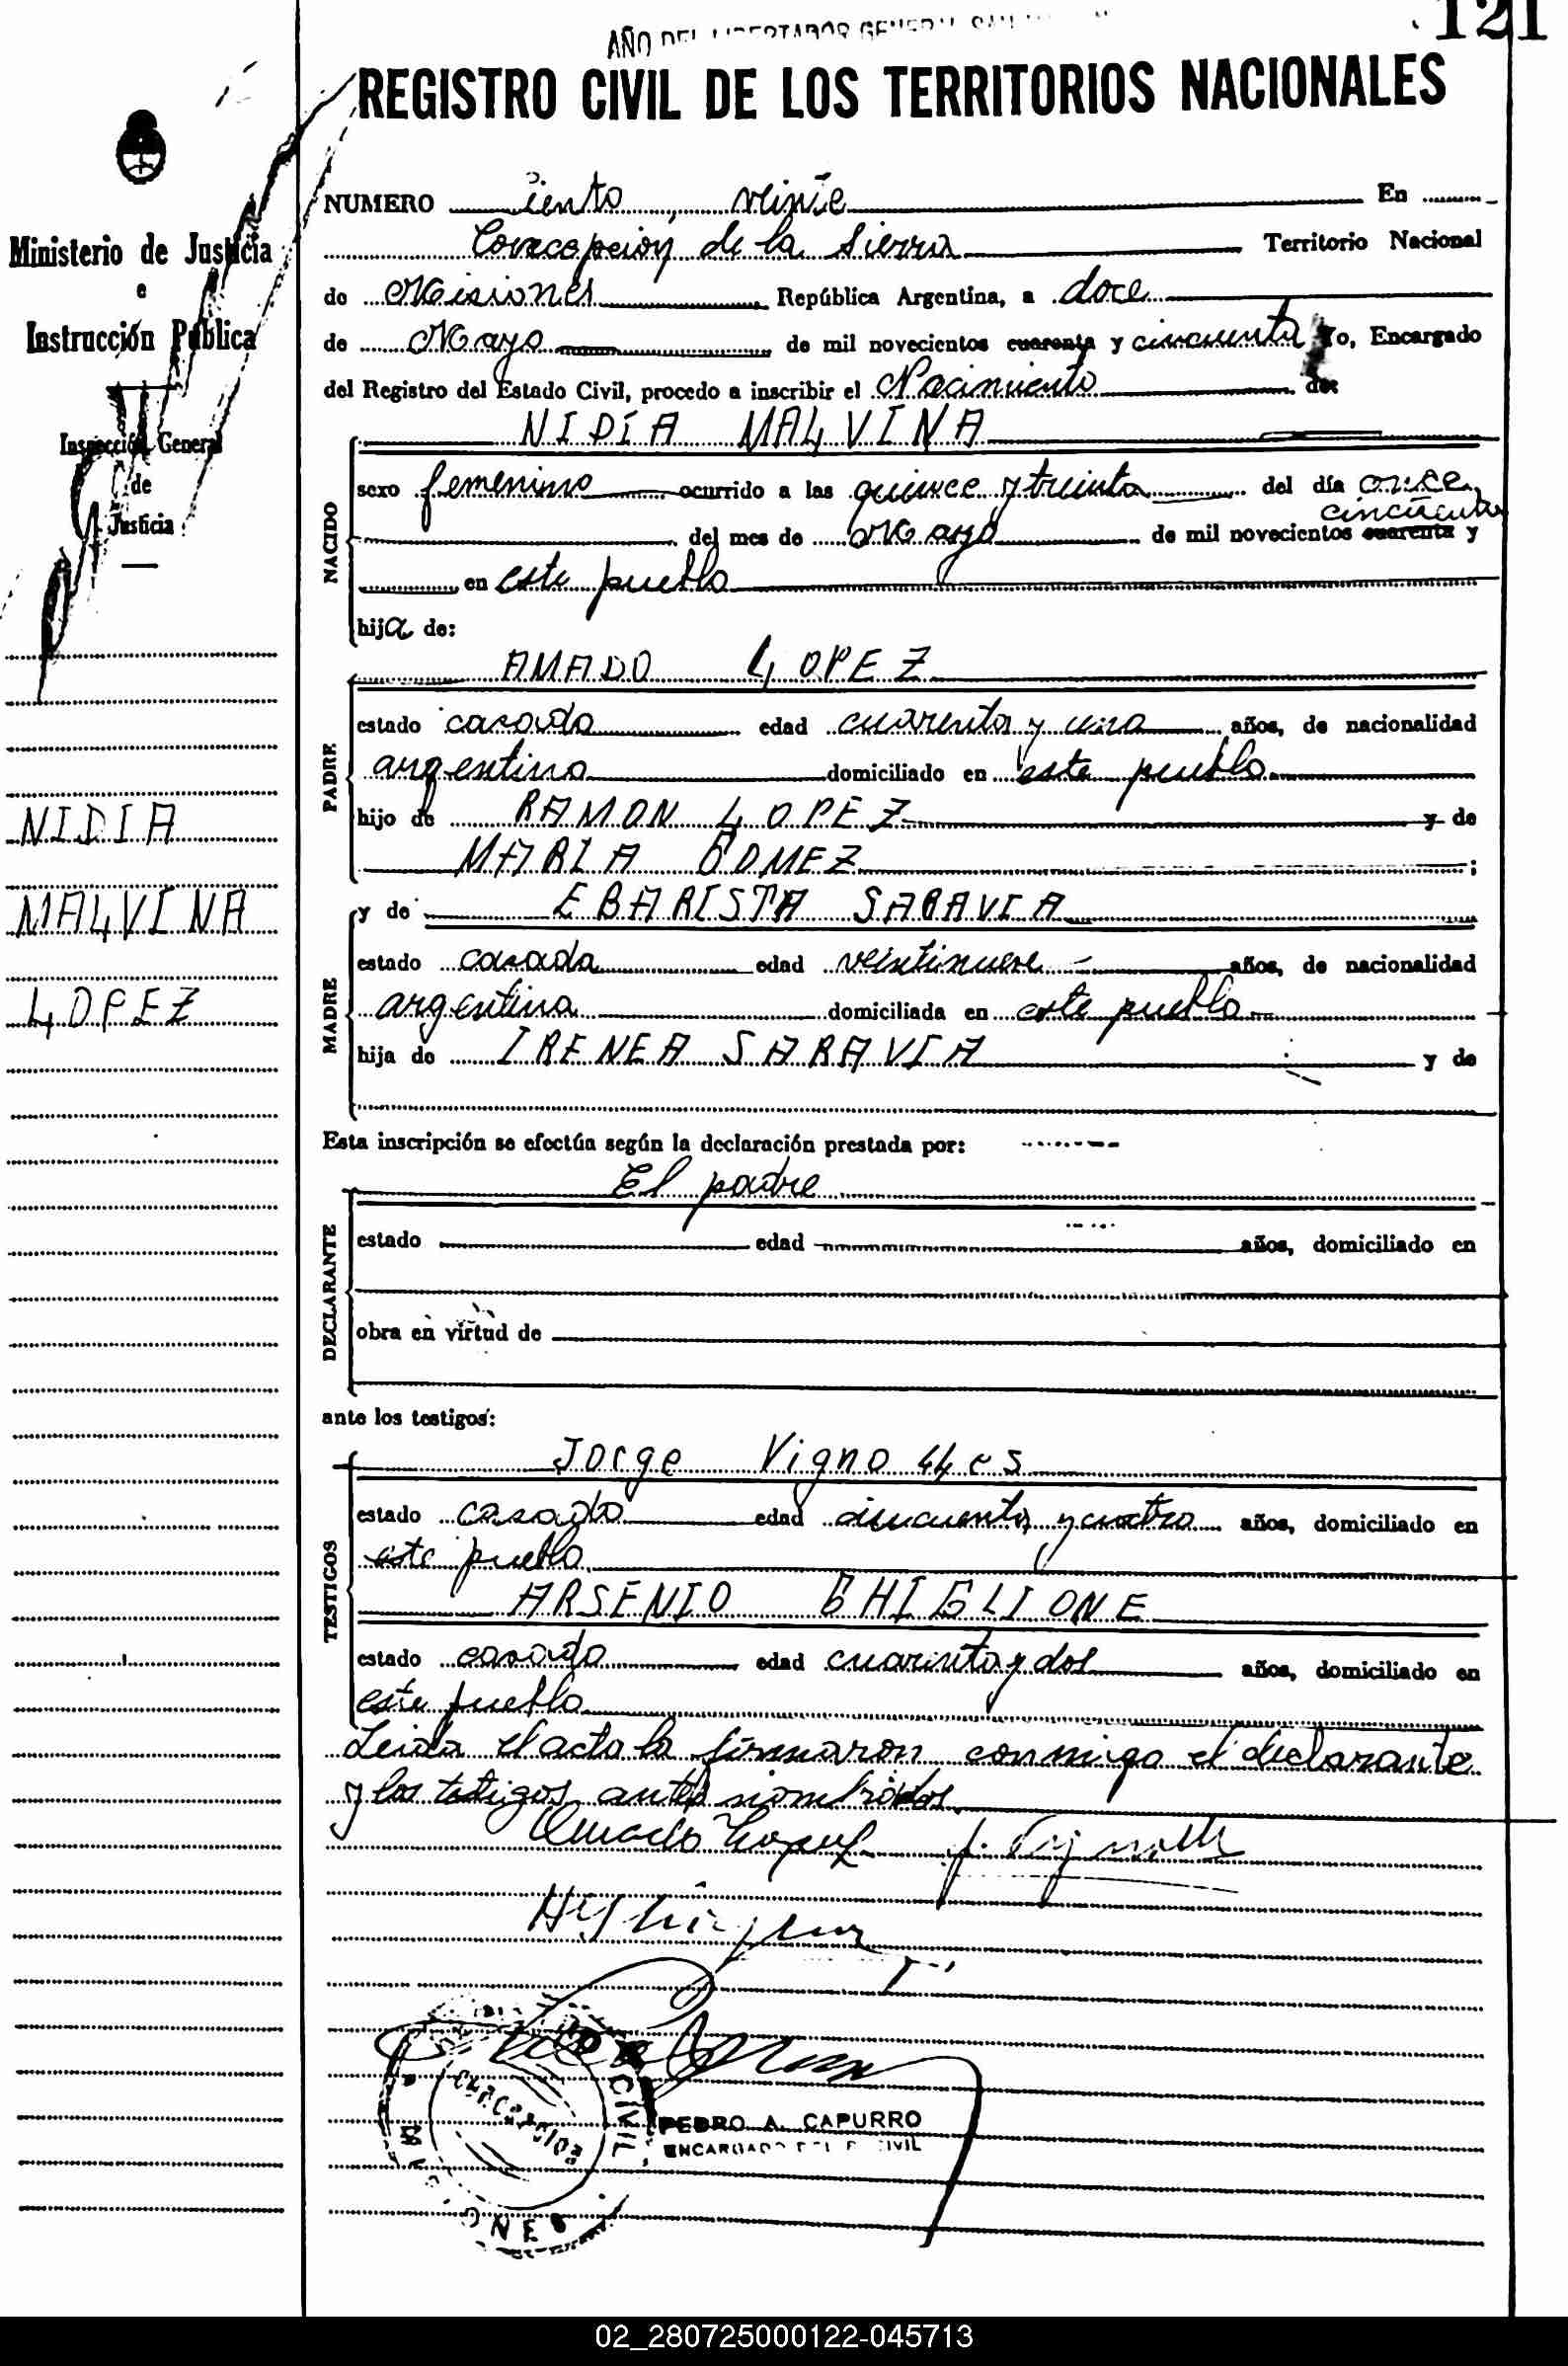 121
AÑO DEL LIBERTADOR GENERAL SAN
REGISTRO CIVIL DE LOS TERRITORIOS NACIONALES
Ministerio de Justicia
e
Instrucción Pública
Inspección General
de
Justicia
NIDIA
MALVINA
LOPEZ
NUMERO ciento veinte En
Concepción de la Sierra Territorio Nacional
de Misiones República Argentina, a doce
de Mayo de mil novecientos cuarenta y cincuenta Yo, Encargado
del Registro del Estado Civil, procedo a inscribir el Nacimiento de:
NIDÍA MALVINA
NACIDO
sexo femenino ocurrido a las quince y treinta del día once
cincuenta
del mes de Mayo de mil novecientos cuarenta y
en este pueblo
hija de:
AMADO LOPEZ
PADRE
estado casado edad cuarenta y uno años, de nacionalidad
argentino domiciliado en este pueblo
hijo de RAMON LOPEZ y de
MARIA GOMEZ ;
y de EBARISTA SARAVIA
MADRE
estado casada edad veintinueve años, de nacionalidad
argentina domiciliada en este pueblo
hija de IRENEA SARAVIA y de
Esta inscripción se efectúa según la declaración prestada por:
El padre
DECLARANTE
estado edad años, domiciliado en
obra en virtud de
ante los testigos:
Jorge Vignolles
TESTIGOS
estado casado edad cincuenta y cuatro años, domiciliado en
este pueblo
ARSENIO GHIGLIONE
estado casado edad cuarenta y dos años, domiciliado en
este pueblo
Leida el acta la firmaron conmigo el declarante
y los testigos antes nombrados.
Amado Lopez J. Vignolles
CIVIL
CONCEPCION
MISIONES
PEDRO A. CAPURRO
ENCARGADO DEL R. CIVIL
02_280725000122-045713